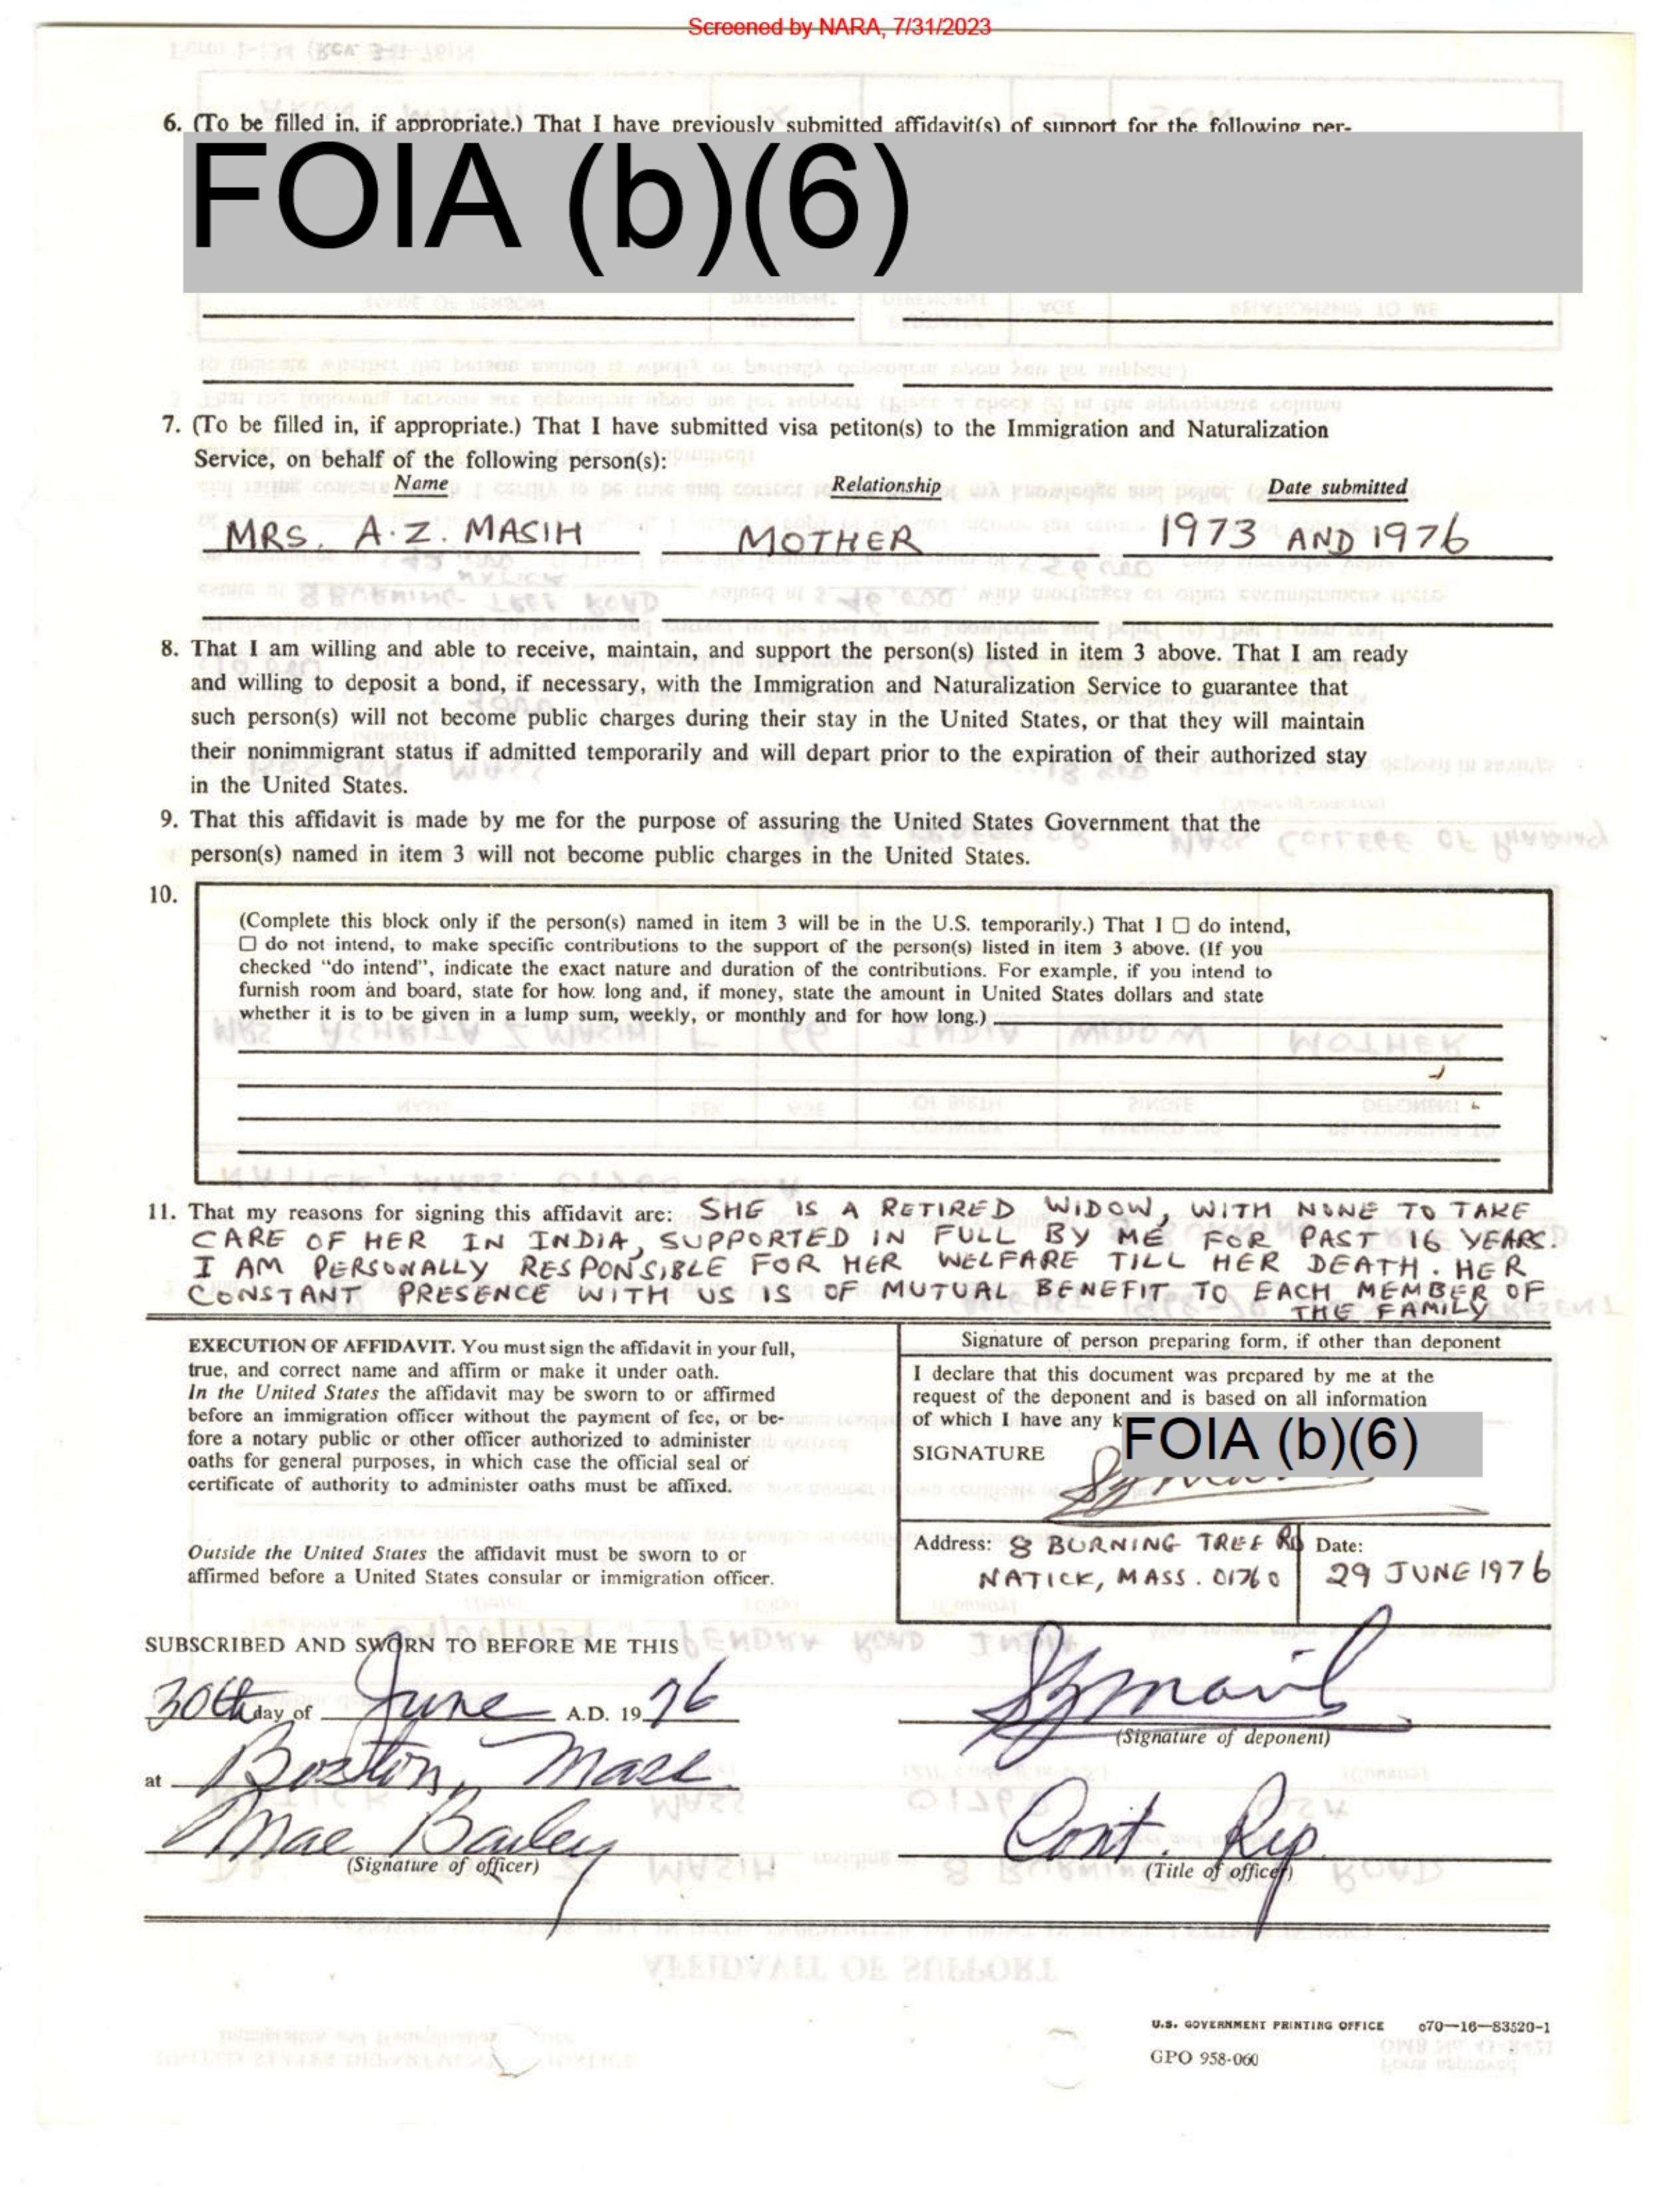 Screened by NARA, 7/31/2023
6. (To be filled in, if appropriate.) That I have previously submitted affidavit(s) of support for the following per-
FOIA (b)(6)
7. (To be filled in, if appropriate.) That I have submitted visa petiton(s) to the Immigration and Naturalization
Service, on behalf of the following person(s):
Name Relationship Date submitted
MRS. A.Z. MASIH MOTHER 1973 AND 1976
8. That I am willing and able to receive, maintain, and support the person(s) listed in item 3 above. That I am ready
and willing to deposit a bond, if necessary, with the Immigration and Naturalization Service to guarantee that
such person(s) will not become public charges during their stay in the United States, or that they will maintain
their nonimmigrant status if admitted temporarily and will depart prior to the expiration of their authorized stay
in the United States.
9. That this affidavit is made by me for the purpose of assuring the United States Government that the
person(s) named in item 3 will not become public charges in the United States.
10.
(Complete this block only if the person(s) named in item 3 will be in the U.S. temporarily.) That I ☐ do intend,
☐ do not intend, to make specific contributions to the support of the person(s) listed in item 3 above. (If you
checked "do intend", indicate the exact nature and duration of the contributions. For example, if you intend to
furnish room and board, state for how long and, if money, state the amount in United States dollars and state
whether it is to be given in a lump sum, weekly, or monthly and for how long.)
11. That my reasons for signing this affidavit are: SHE IS A RETIRED WIDOW, WITH NONE TO TAKE
CARE OF HER IN INDIA, SUPPORTED IN FULL BY ME FOR PAST 16 YEARS.
I AM PERSONALLY RESPONSIBLE FOR HER WELFARE TILL HER DEATH. HER
CONSTANT PRESENCE WITH US IS OF MUTUAL BENEFIT TO EACH MEMBER OF
THE FAMILY
EXECUTION OF AFFIDAVIT. You must sign the affidavit in your full,
true, and correct name and affirm or make it under oath.
In the United States the affidavit may be sworn to or affirmed
before an immigration officer without the payment of fee, or be-
fore a notary public or other officer authorized to administer
oaths for general purposes, in which case the official seal or
certificate of authority to administer oaths must be affixed.
Outside the United States the affidavit must be sworn to or
affirmed before a United States consular or immigration officer.
Signature of person preparing form, if other than deponent
I declare that this document was prepared by me at the
request of the deponent and is based on all information
of which I have any k
FOIA (b)(6)
SIGNATURE
Address: 8 BURNING TREE RD
NATICK, MASS. 01760
Date:
29 JUNE 1976
SUBSCRIBED AND SWORN TO BEFORE ME THIS
30th day of June A.D. 19 76
(Signature of deponent)
at Boston, Mass
Mae Bailey Cont. Rep.
(Signature of officer) (Title of officer)
U.S. GOVERNMENT PRINTING OFFICE c70—16—83520-1
GPO 958-060